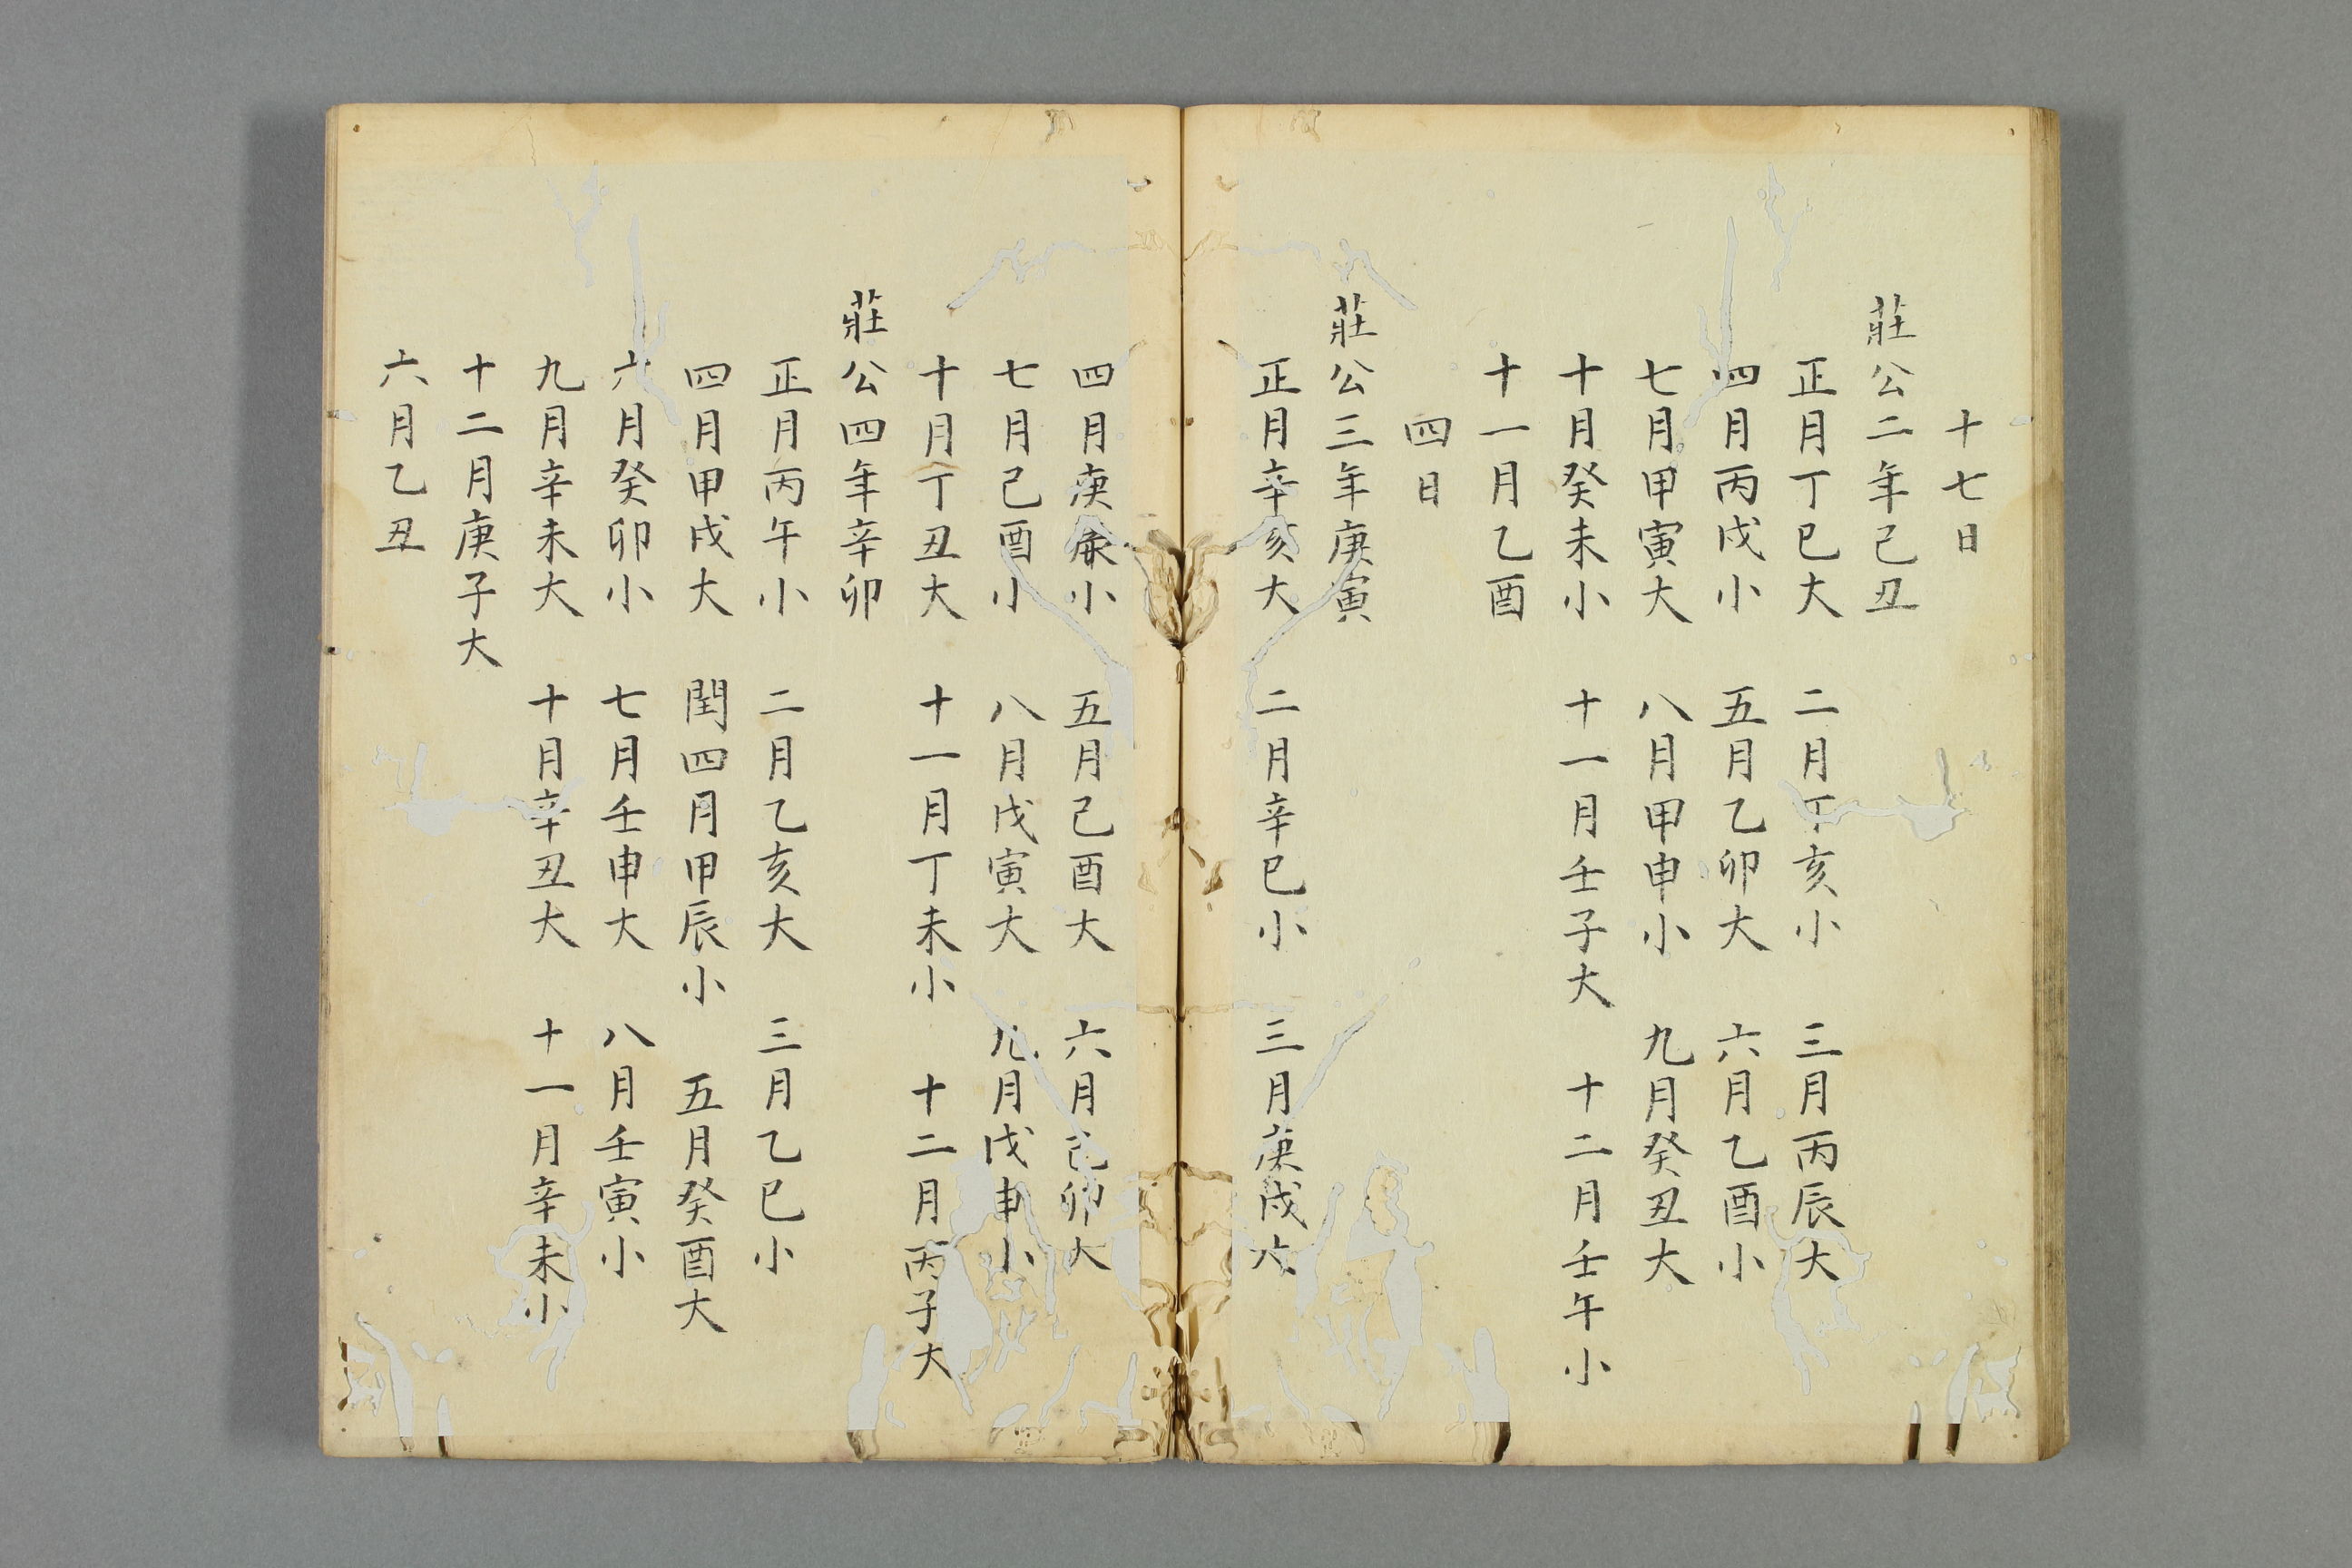 十七日
莊公二年己丑
正月丁巳大 二月丁亥小 三月丙辰大
四月丙戌小 五月乙卯大 六月乙酉小
七月甲寅大 八月甲申小 九月癸丑大
十月癸未小 十一月壬子大 十二月壬午小
十一月乙酉
四日
莊公三年庚寅
正月辛亥大 二月辛巳小 三月庚戌大
四月庚辰小 五月己酉大 六月己卯大
七月己酉小 八月戊寅大 九月戊申小
十月丁丑大 十一月丁未小 十二月丙子大
莊公四年辛卯
正月丙午小 二月乙亥大 三月乙巳小
四月甲戌大 閏四月甲辰小 五月癸酉大
六月癸卯小 七月壬申大 八月壬寅小
九月辛未大 十月辛丑大 十一月辛未小
十二月庚子大
六月乙丑